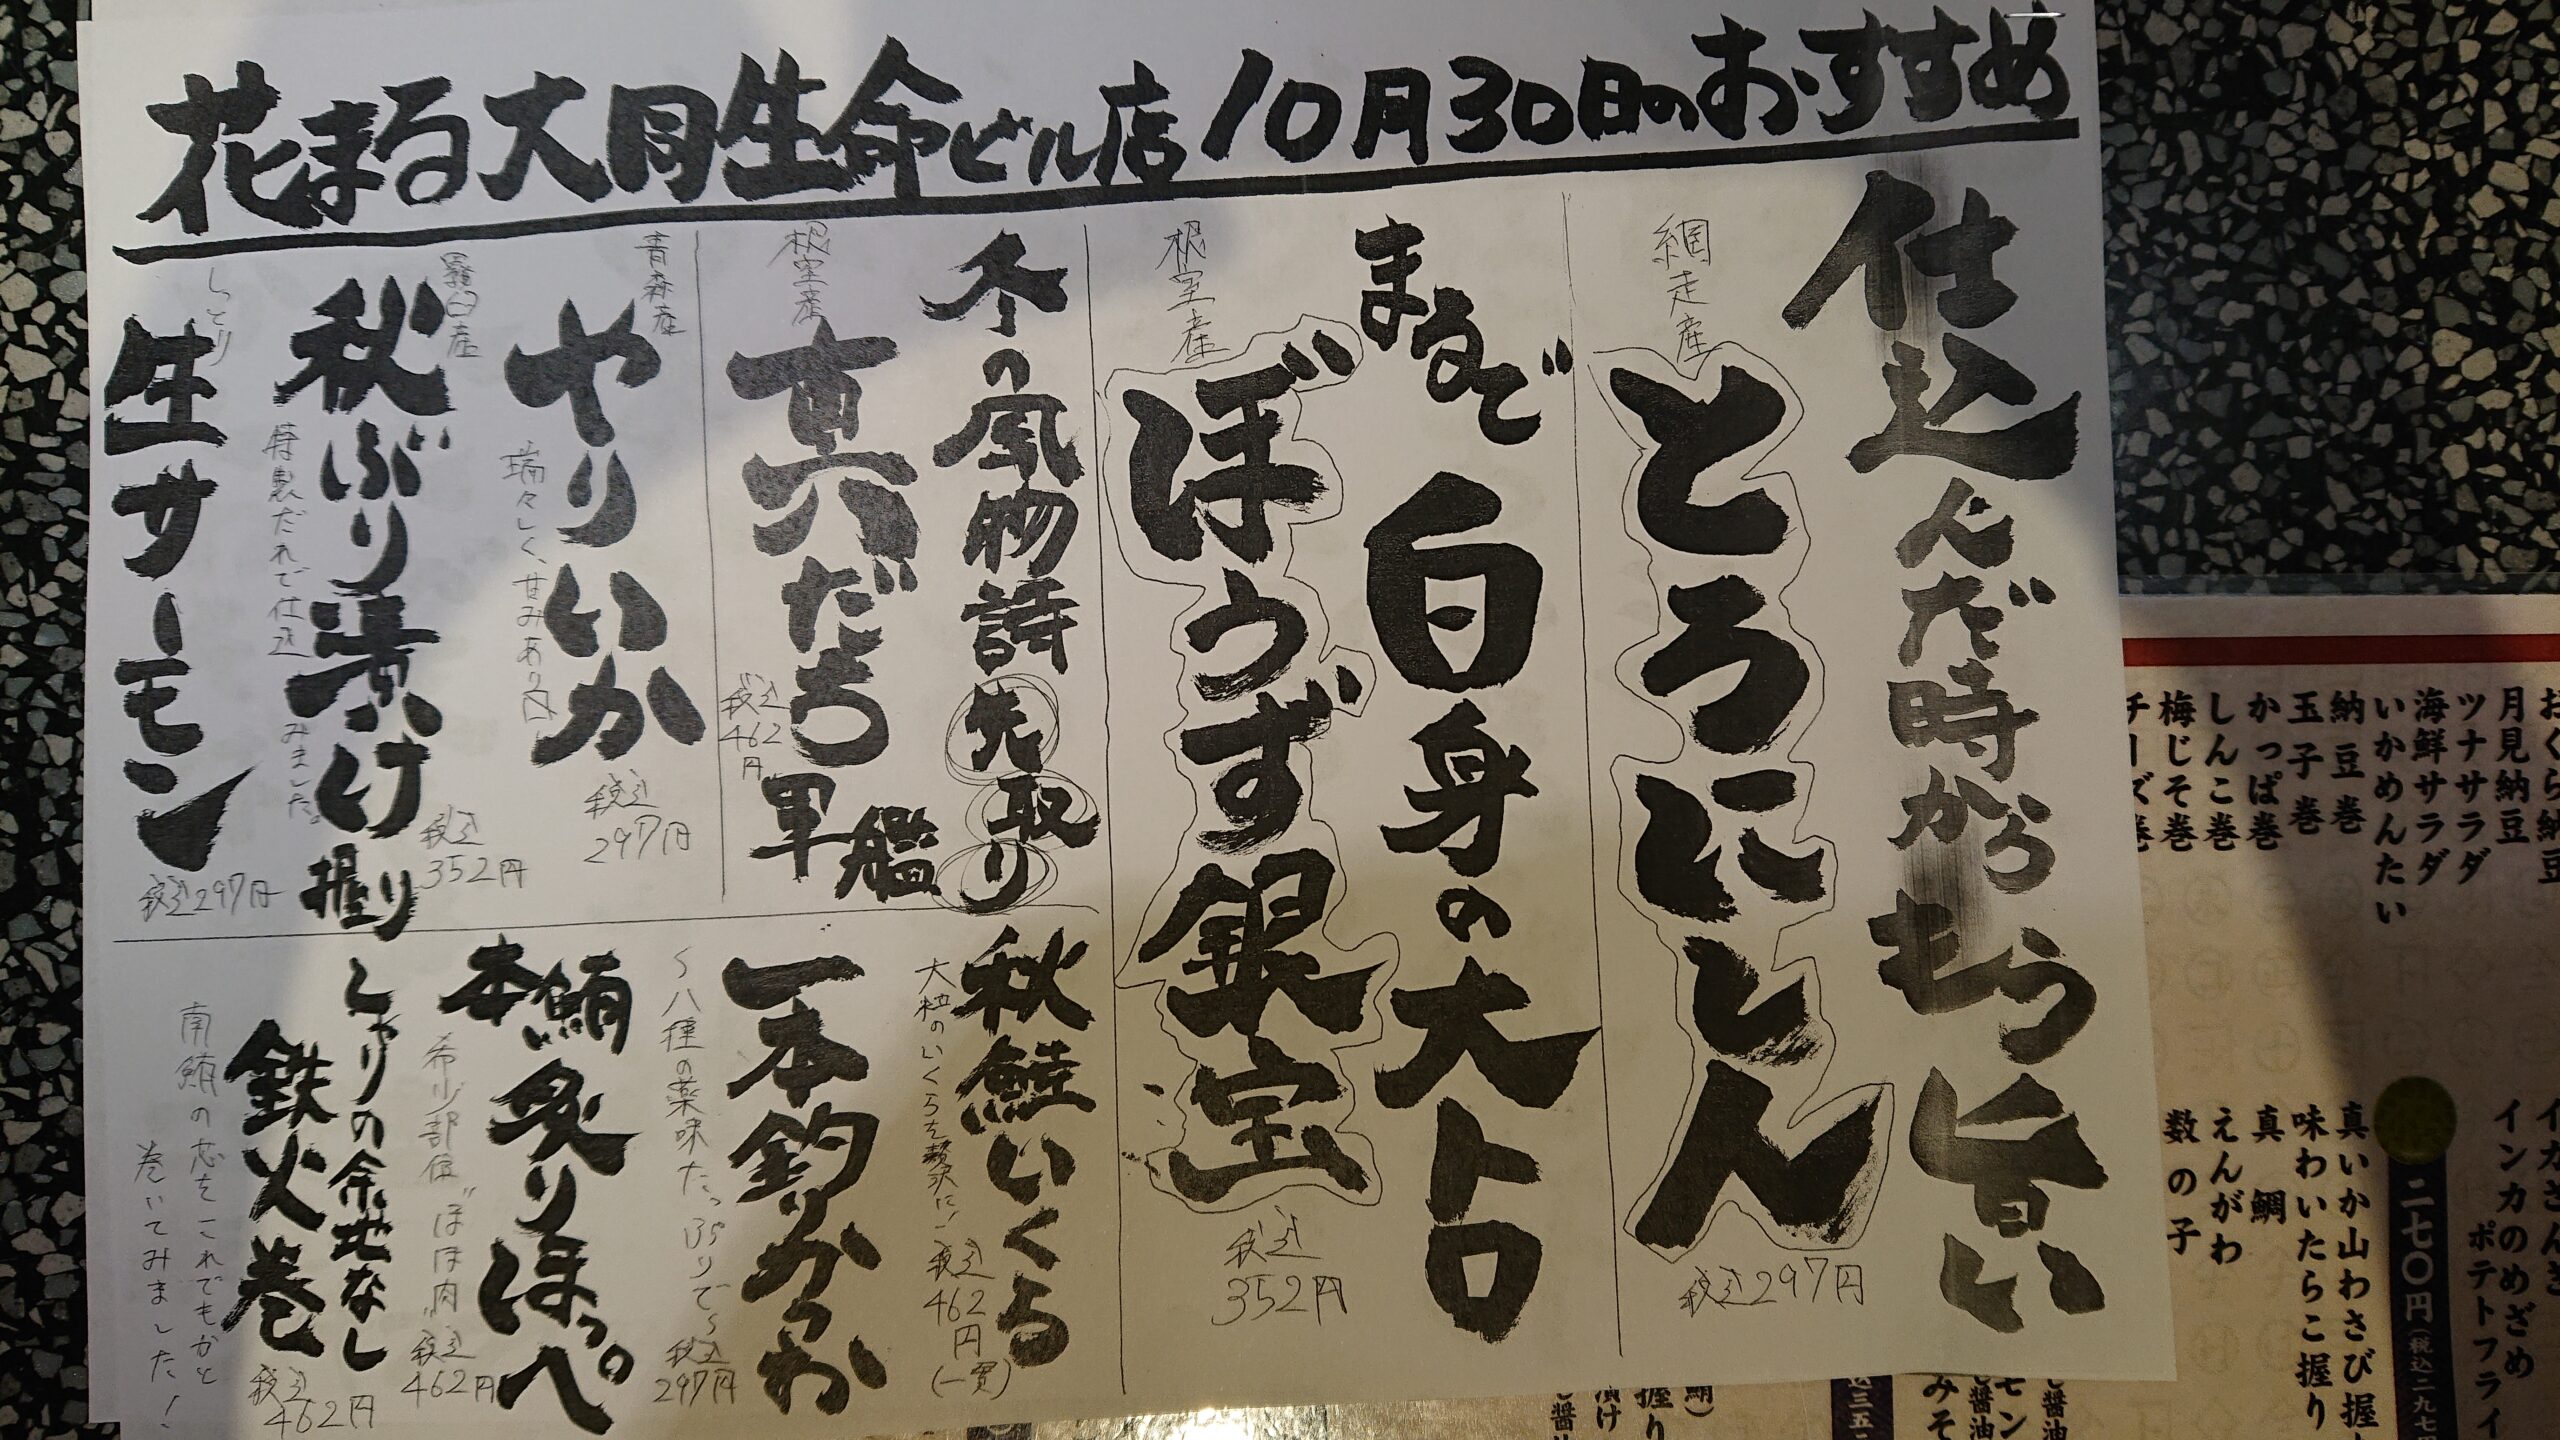 花まる大同生命ビル店10月30日のおすすめ
仕込んだ時からもう旨い
網走産
とろにしん
税込297円
まるで白身の大トロ
根室産
ぼうず銀宝
税込
352円
冬の風物詩先取り
根室産
真だち軍艦
税込
462
円
青森産
やりいか
瑞々しく、甘みあり
税込
297円
羅臼産
秋ぶり漬け握り
特製だれで仕込みました。
税込
352円
しっとり
生サーモン
税込297円
秋鮭いくら
大粒のいくらを贅沢に!
税込
462
円
(一貫)
一本釣りかつお
〜八種の薬味たっぷりで〜
税込
297円
本鮪炙りほっぺ
希少部位"ほほ肉"
税込
462円
しゃりの余地なし
鉄火巻
税込
462円
南鮪の芯をこれでもかと
巻いてみました!
おくら納豆
月見納豆
ツナサラダ
海鮮サラダ
いかめんたい
納豆巻
玉子巻
かっぱ巻
しんこ巻
梅じそ巻
チーズ巻
インカのめざめ
ポテトフライ
二七〇円
真いか山わさび握
味わいたらこ握り
真鯛
えんがわ
数の子